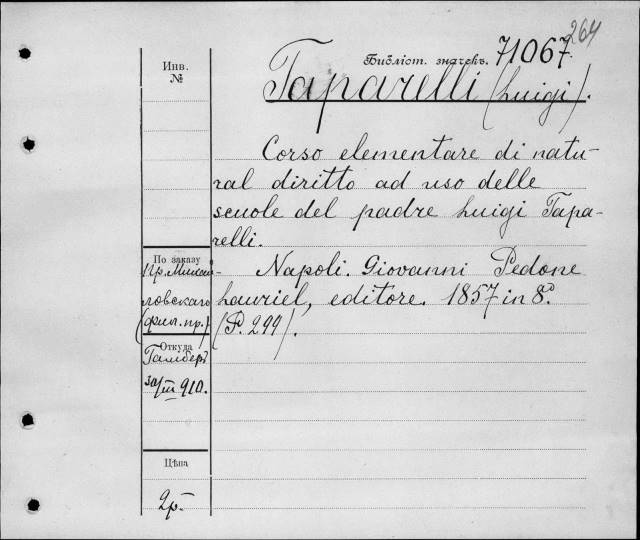 264
Библіот. значекъ. 71067
Инв.
№
Taparelli (Luigi).
Corso elementare di natu-
ral diritto ad uso delle
scuole del padre Luigi Tapa-
relli.
По заказу
пр. Михай-
ловскаго
(фил. пр.)
Napoli. Giovanni Pedone
Lauriel, editore. 1857 in 8º.
(P. 299).
Откуда
Гамберъ
30/III 910.
Цѣна
2р.